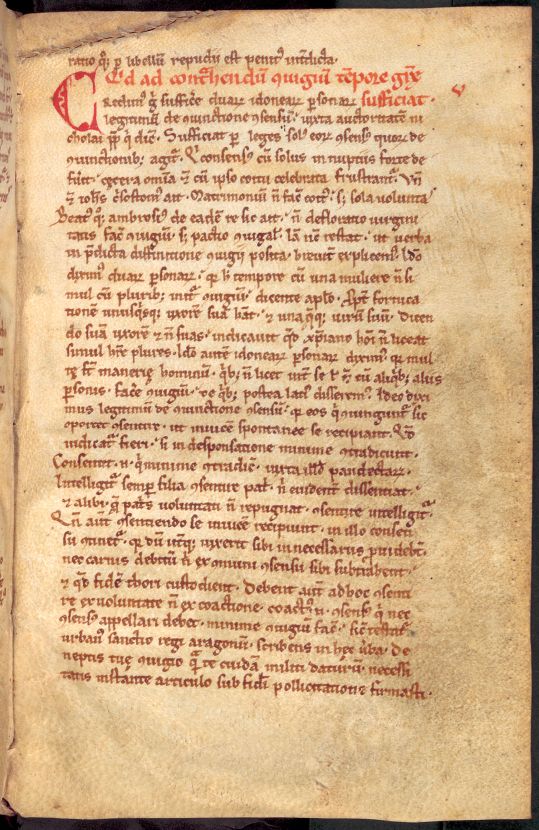 ratio q; p libellū repudii est penit' int̄dicta.
Qd ad cont̄hendū ɔiugiū tēpore gr̄e
sufficiat.
Credim' g̃ sufficẽ duaꝝ idoneaꝝ p̱sonaꝝ
legitimū de ɔiunctione ɔsensū. iuxta auctoritatē ni
cholai pp̄ q̄ dic̄. Sufficiat p leges sol' eoꝝ ɔsensus quoꝝ de
ɔiunctionib; agit̃. Q̄ consensus cū solus in nuptiis forte de
fuit. cetera om̄ia &̃ cū ipso coitu celebrata frustrant̃. Vñ
⁊ ioh̄s ait. Matrimoniū ñ fac̄ coit'. s; sola volunta'
Beat' q; ambrosi' de eadē re sic ait. ñ defloratio uirgini
tatis fac̄ ɔiugiū. s; pactio ɔiugal'. Iā nc̄ restat. ut uerba
in p̄dicta diffinitione ɔiugii posita. breuit̃ explicem'. Iđo
dixim' duaꝝ p̱sonaꝝ. q̄ h' tempore cū una muliere ñ si
mul cū plurib; init̃ ɔiugiū. dicente ap̄lo. Ꝓpt̃ fornica
tionē unusq̇sq; uxorē suā hāt. ⁊ una q̄q; uirū suū. Dicen
do suā uxorē ⁊ ñ suas. indicauit qđ xp̄iano hōi ñ liceat
simul hr̄e plures. Iđo autē idoneaꝝ p̱sonaꝝ dixim'. q̄ mul
tę st̄ manerię hominū. q̇b; ñ licet
p̱sonis. facẽ ɔiugiū. de q̇b; postea lati' disserem'. Ideo dixi
mus legitimū de ɔiunctione ɔsensū. q̄ eos q̇ ɔiungunt̃ sic
oportet ɔsentire. ut inuicē spontanee se recipiant. Qđ
iudicat̃ fieri. si in desponsatione minime ɔtradicunt.
Consentit. n. q̇ minime ɔtradic̄. iuxta illđ pandectaꝝ.
Intelligit̃ semp̱ filia ɔsentire pat'. n' euident̃ dissentiat.
⁊ alibi. q̄ pat's voluntati ñ repugnat. ɔsentire intelligit̃.
Qñ aut̄ ɔsentiendo se inuicē recipiunt. in illo consen
su q̄ dū utq; uixerit sibi in necessariis puidebt̄.
nec carius debitū ñ ex ɔmuni ɔsensu sibi subtrahent.
⁊ qđ fidē thori custodient. Debent aut̄ ad hoc ɔsenti
re ex uoluntate ñ ex coactione. coact' n. ɔsens' q̄ nec
ɔsensus appellari debet. minime ɔiugiū fac̄. sic̄ testat̃
urban' sanctio regi aragonū. scribens in hec ūba. De
neptis tuę ɔiugio q̄ te cuidā militi daturū. necessi
tatis instante articulo sub fidei pollicitatione firmasti.